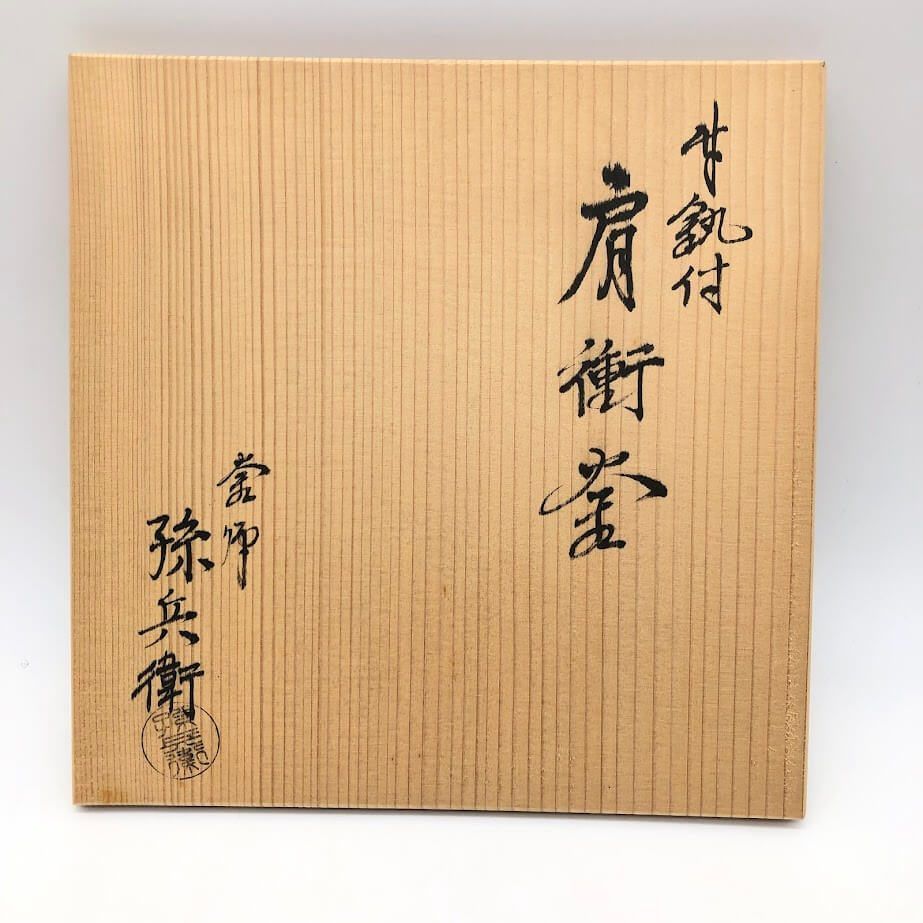 釻付
肩衝釜
釜師
孫兵衛